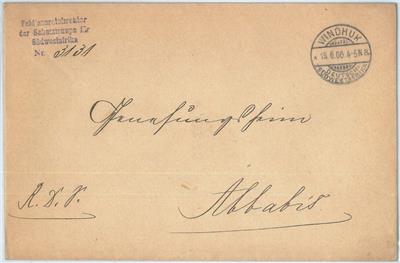 Feldlazarettdirektor
der Schutztruppe für
Südwestafrika
Nr. 3131
WINDHUK
* 15.6.06.4-5N *
DEUTSCH-
SÜDWESTAFRIKA
Genesungsheim
R. D. S.
Abbabis